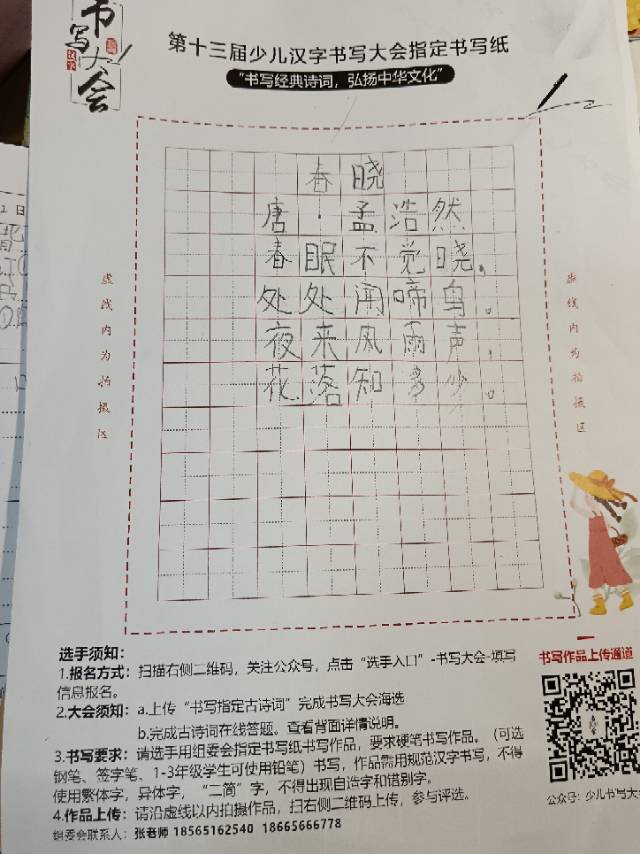 书写大会
汉字
第十三届少儿汉字书写大会指定书写纸
“书写经典诗词，弘扬中华文化”
春晓
唐·孟浩然
春眠不觉晓，
处处闻啼鸟。
夜来风雨声，
花落知多少。
虚线内为拍摄区
虚线内为拍摄区
选手须知：
1.报名方式：扫描右侧二维码，关注公众号，点击“选手入口”-书写大会-填写
信息报名。
2.大会须知：a.上传“书写指定古诗词”完成书写大会海选
b.完成古诗词在线答题。查看背面详情说明。
3.书写要求：请选手用组委会指定书写纸书写作品，要求硬笔书写作品。（可选
钢笔、签字笔、1-3年级学生可使用铅笔）书写，作品需用规范汉字书写，不得
使用繁体字，异体字，“二简”字，不得出现自造字和错别字。
4.作品上传：请沿虚线以内拍摄作品，扫右侧二维码上传，参与评选。
组委会联系人：张老师 18565162540 18665666778
书写作品上传通道
公众号：少儿书写大